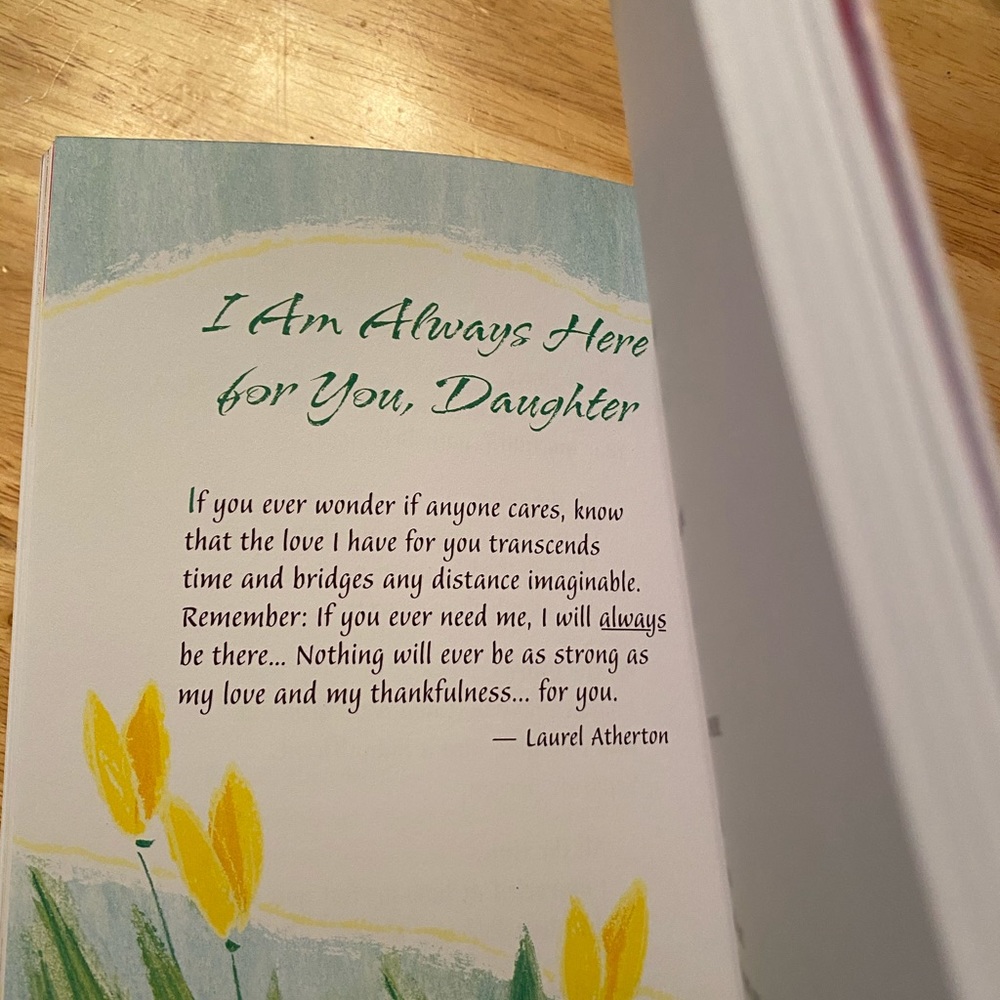 I Am Always Here
for You, Daughter
If you ever wonder if anyone cares, know
that the love I have for you transcends
time and bridges any distance imaginable.
Remember: If you ever need me, I will always
be there... Nothing will ever be as strong as
my love and my thankfulness... for you.
— Laurel Atherton